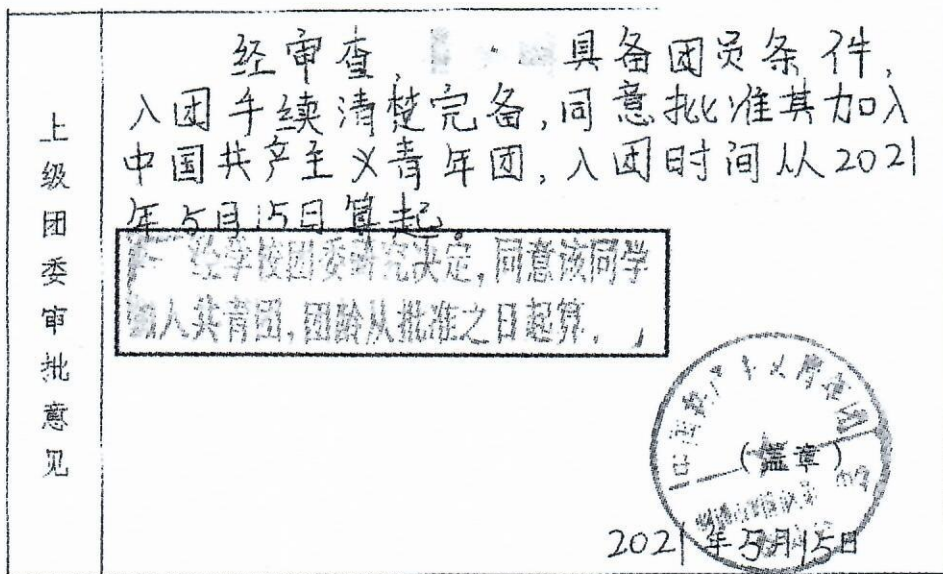 上级团委审批意见
经审查, 具备团员条件,
入团手续清楚完备,同意批准其加入
中国共产主义青年团,入团时间从2021
年5月15日算起。
经学校团委研究决定,同意该同学
加入共青团,团龄从批准之日起算。
中国共产主义青年团
(盖章)
2021年5月15日